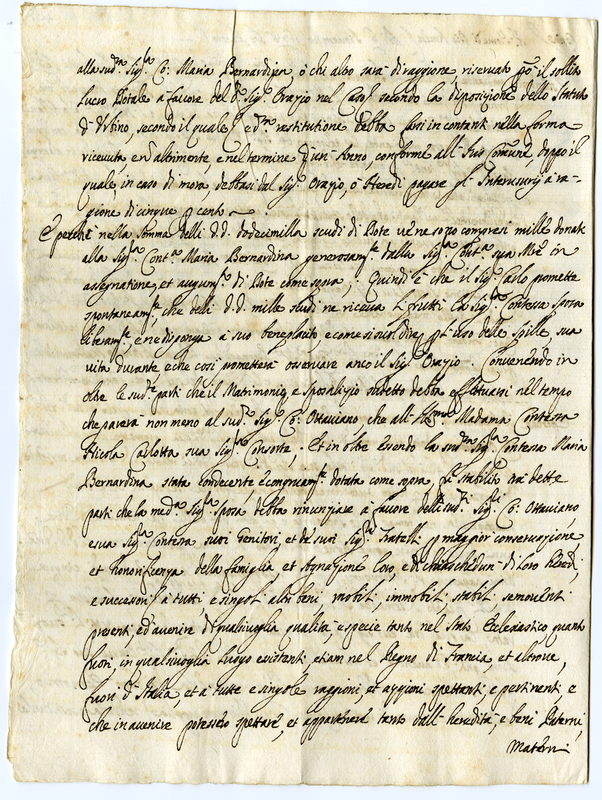 alla sud.ª Sig.ª Co: Maria Bernardina, ò chi altro sarà di raggione, riservato però il solito
Lucro Dotale a favore del d.º Sig. Orazio nel Caso secondo la disposizione dello Statuto
d'Urbino, secondo il quale ed.ª restitutione debba farsi in contanti nella forma
ricevuta, e nò altrimente, e nel termine d'un Anno, conforme all'Ius Comune, doppo il
quale, in caso di mora, debbasi dal Sig. Orazio, ò Heredi pagare gl'Interusurij a ra-
gione di cinque p cento.
E perche nella Somma delli d.d. dodecimilla scudi di Dote ve ne sono compresi mille donati
alla Sig.ª Cont.ª Maria Bernardina generosam.te dalla Sig.ª Cont.ª sua M.re in
assegnatione, et augum.to di Dote come sopra; Quindi è che il Sig. Carlo promette
spontaneam.te che delli d.d. mille scudi ne riceva i frutti la Sig.ª Contessa sposa
liberam.te, e ne disponga a suo beneplacito, e come si suol dire p l'uso delle Spille, sua
vita durante, e che così prometterà osservare anco il Sig. Orazio. Convenendo in
oltre le sud.e parti che il Matrimonio, e Sposalizio sudetto debba effettuarsi nel tempo
che parerà non meno al sud.º Sig. Co: Ottaviano, che all' Madama Contessa
Nicola Carlotta sua Sig.ª Consorte; Et in oltre essendo la sud.ª Sig.ª Contessa Maria
Bernardina stata condecente, e congruam.te dotata come sopra, fù stabilito trà dette
parti che la med.ª Sig.ª Sposa debba rinunziare à favore delli sud.ti Sig.ri Co: Ottaviano,
e sua Sig.ª Contessa suoi Genitori, et de suoi Sig.ri Fratelli p maggior conservazione,
et honorificenza della famiglia et Agnazione loro, e di chiascheduno di loro Heredi,
e successori à tutti, e singoli altri beni, mobili, immobili, stabili, semoventi
presenti, ed'avenire di qualsivoglia qualità, e specie tanto nel Stato Ecclesiastico quanto
fuori, in qualsivoglia luogo existenti, etiam nel Regno di Francia, et altrove,
fuori d'Italia, et à tutte e singole raggioni, et azzioni spettanti, e pertinenti, e
che in avenire potessero spettare, et appartenere tanto dall'heredità, e beni Paterni,
Materni